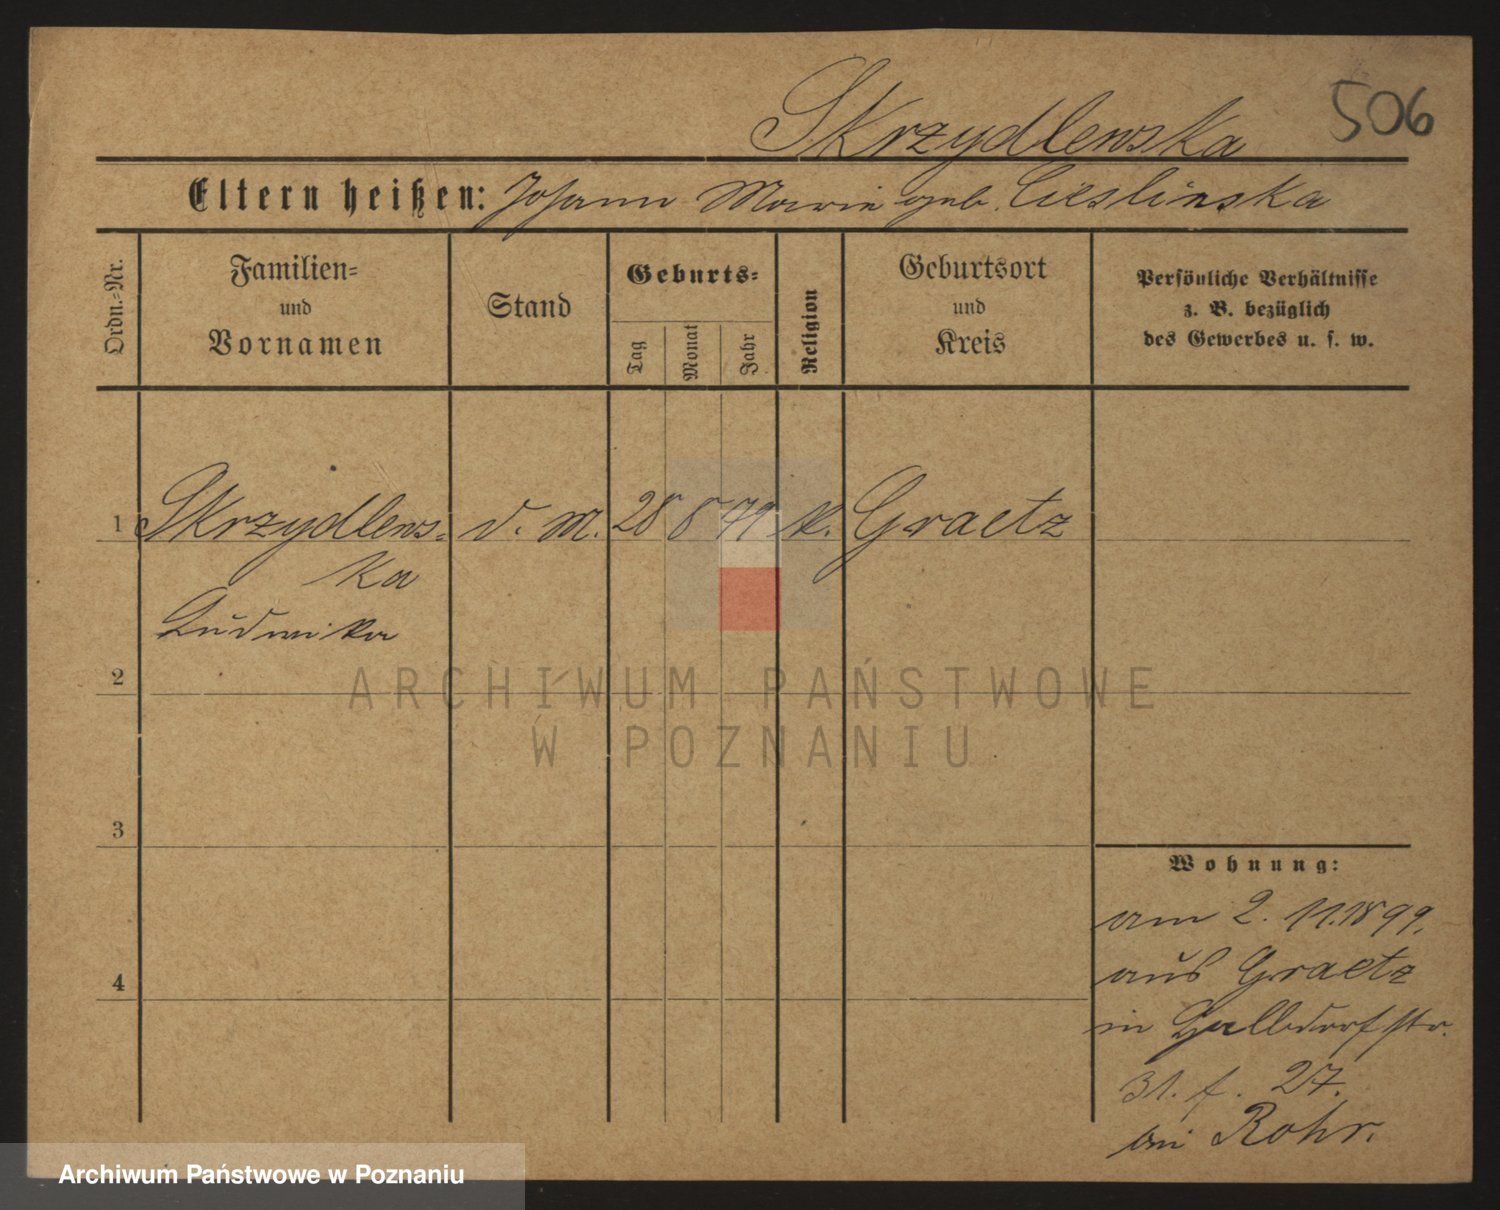 506
Skrzydlewska
Eltern heißen: Johann Marie geb. Cieslinska
Ordn.-Nr.
Familien-
und
Vornamen
Stand
Geburts-
Tag
Monat
Jahr
Religion
Geburtsort
und
Kreis
Persönliche Verhältnisse
z. B. bezüglich
des Gewerbes u. s. w.
1 Skrzydlews- d. M. 28 8 79 k. Graetz
ka
Ludwika
2
ARCHIWUM PAŃSTWOWE
W POZNANIU
3
Wohnung:
am 2. 11. 1899.
aus Graetz
4
in
31. f. 27.
bei Rohr.
Archiwum Państwowe w Poznaniu